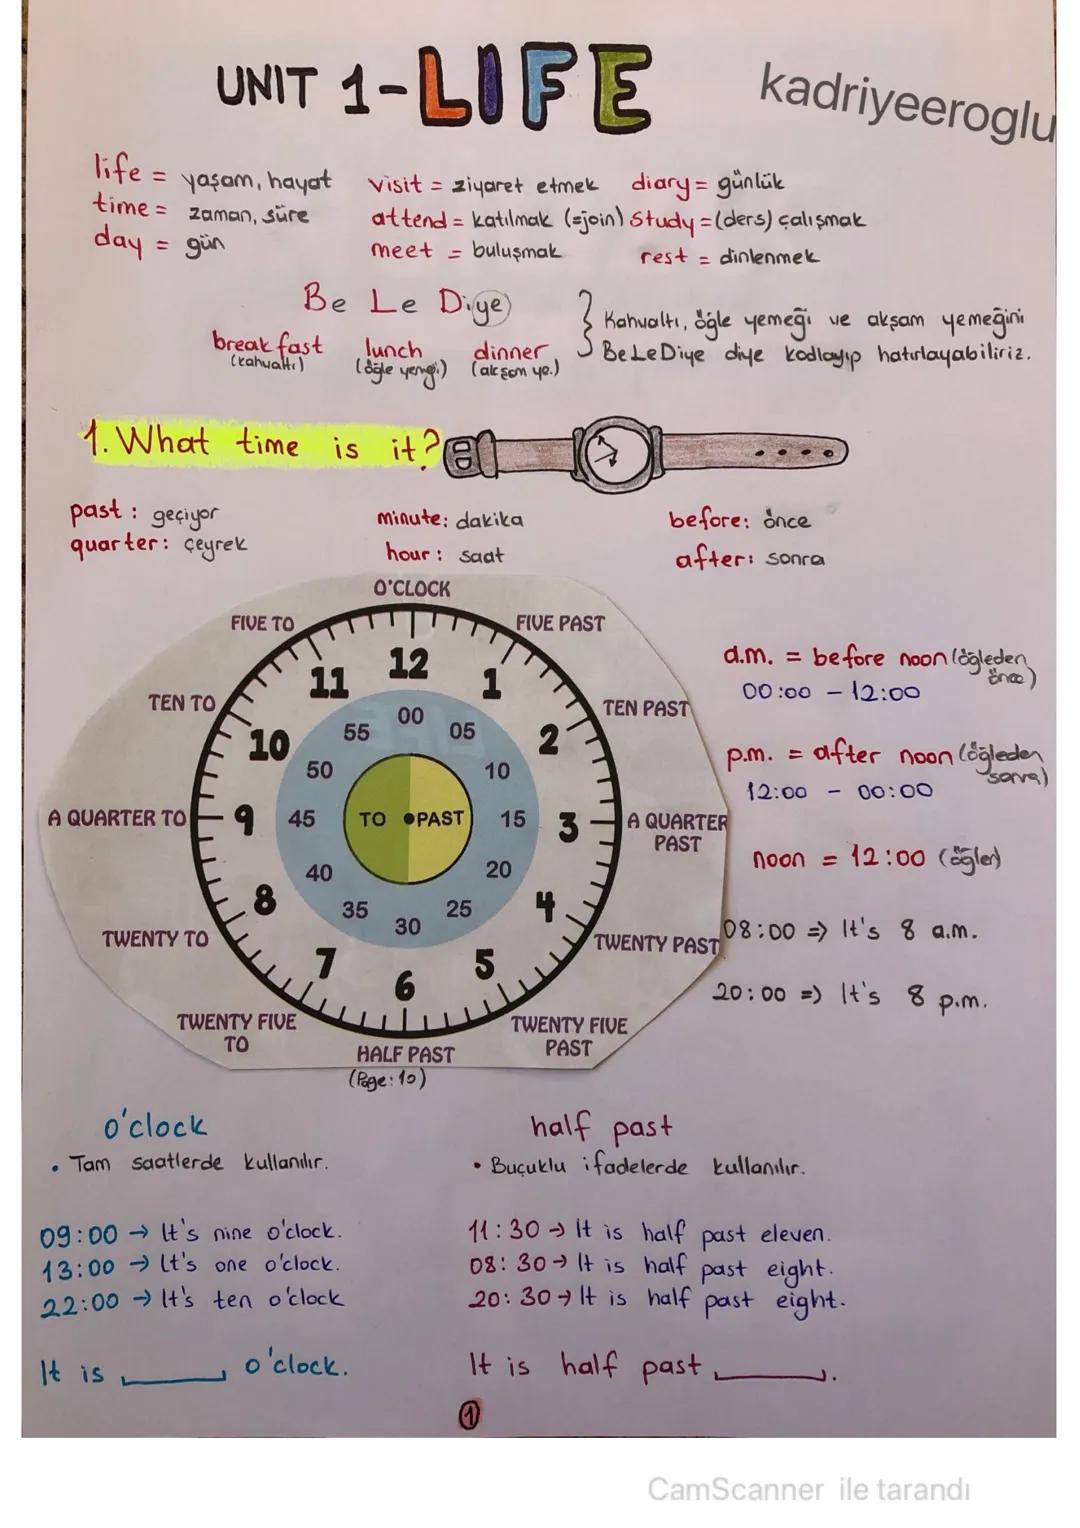 UNIT 1-LIFE
kadriyeeroglu
life = yaşam, hayat
time = zaman, süre
day = gün
visit = ziyaret etmek
attend = katılmak (=join)
meet = buluşmak
diary = günlük
study = (ders) çalışmak
rest = dinlenmek
Be Le Diye
breakfast (kahvaltı)
lunch (öğle yemği)
dinner (akşam ye.)
Kahvaltı, öğle yemeği ve akşam yemeğini
BeLeDiye diye kodlayıp hatırlayabiliriz.
1. What time is it?
past : geçiyor
quarter: çeyrek
minute: dakika
hour : saat
before: önce
after: sonra
O'CLOCK
FIVE TO
FIVE PAST
TEN TO
TEN PAST
A QUARTER TO
A QUARTER PAST
TWENTY TO
TWENTY PAST
TWENTY FIVE TO
TWENTY FIVE PAST
HALF PAST
12 1 2 3 4 5 6 7 8 9 10 11
00 05 10 15 20 25 30 35 40 45 50 55
TO PAST
(Page: 10)
a.m. = before noon (öğleden önce)
00:00 - 12:00
p.m. = after noon (öğleden sonra)
12:00 - 00:00
noon = 12:00 (öğlen)
08:00 => It's 8 a.m.
20:00 => It's 8 p.m.
o'clock
• Tam saatlerde kullanılır.
09:00 → It's nine o'clock.
13:00 → It's one o'clock.
22:00 → It's ten o'clock
It is ______ o'clock.
half past
• Buçuklu ifadelerde kullanılır.
11:30 → It is half past eleven.
08:30 → It is half past eight.
20:30 → It is half past eight.
It is half past ______.
1
CamScanner ile tarandı